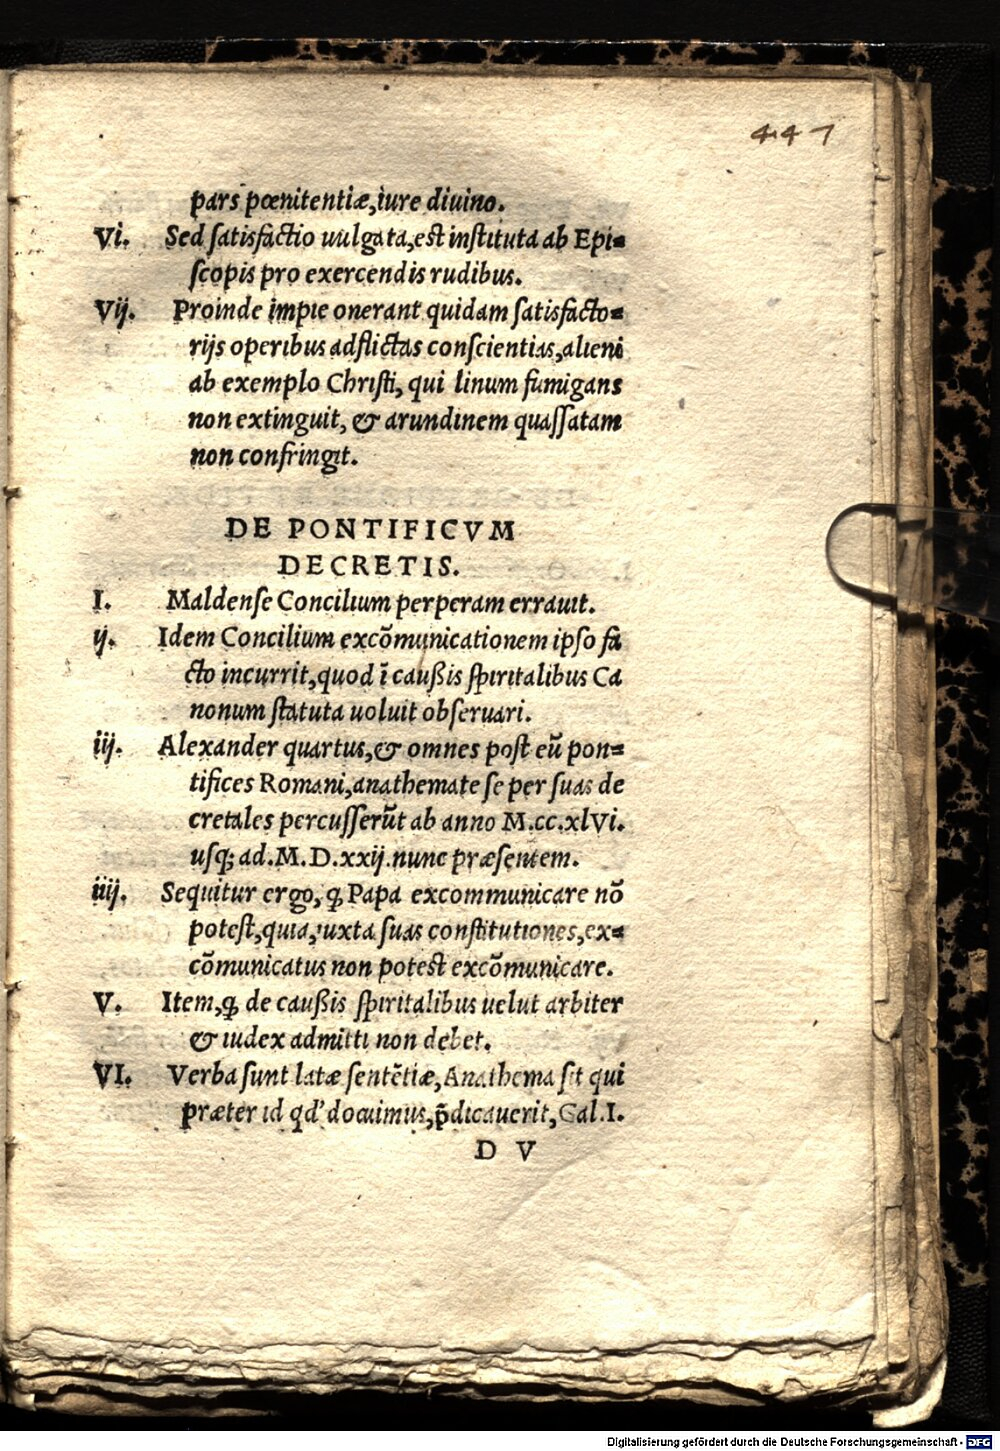 447
pars pœnitentiæ,iure diuino.
Vi. Sed ſatisfactio uulgata,est inſtituta ab Epi⸗
ſcopis pro exercendis rudibus.
Vij. Proinde impie onerant quidam ſatisfacto⸗
rijs operibus adflictas conſcientias,alieni
ab exemplo Chriſti, qui linum fumigans
non extinguit, & arundinem quaſſatam
non confringit.
DE PONTIFICVM
DECRETIS.
I. Maldenſe Concilium perperam errauit.
ij. Idem Concilium excõmunicationem ipſo fa
cto incurrit,quod ī cauſsis ſpiritalibus Ca
nonum ſtatuta uoluit obſeruari.
iij. Alexander quartus,& omnes poſt eũ pon⸗
tifices Romani,anathemate ſe per ſuas de
cretales percuſſerũt ab anno M.cc.xlVi.
uſq; ad.M.D.xxij.nunc præſentem.
iiij. Sequitur ergo,ꝙ Papa excommunicare nõ
poteſt,quia,iuxta ſuas conſtitutiones,ex⸗
cõmunicatus non potest excõmunicare.
V. Item,ꝙ de cauſsis ſpiritalibus uelut arbiter
& iudex admitti non debet.
VI. Verba ſunt latæ ſentẽtiæ,Anathema ſit qui
præter id qd' docuimus,p̃dicauerit,Gal.I.
D V
Digitalisierung gefördert durch die Deutsche Forschungsgemeinschaft - DFG